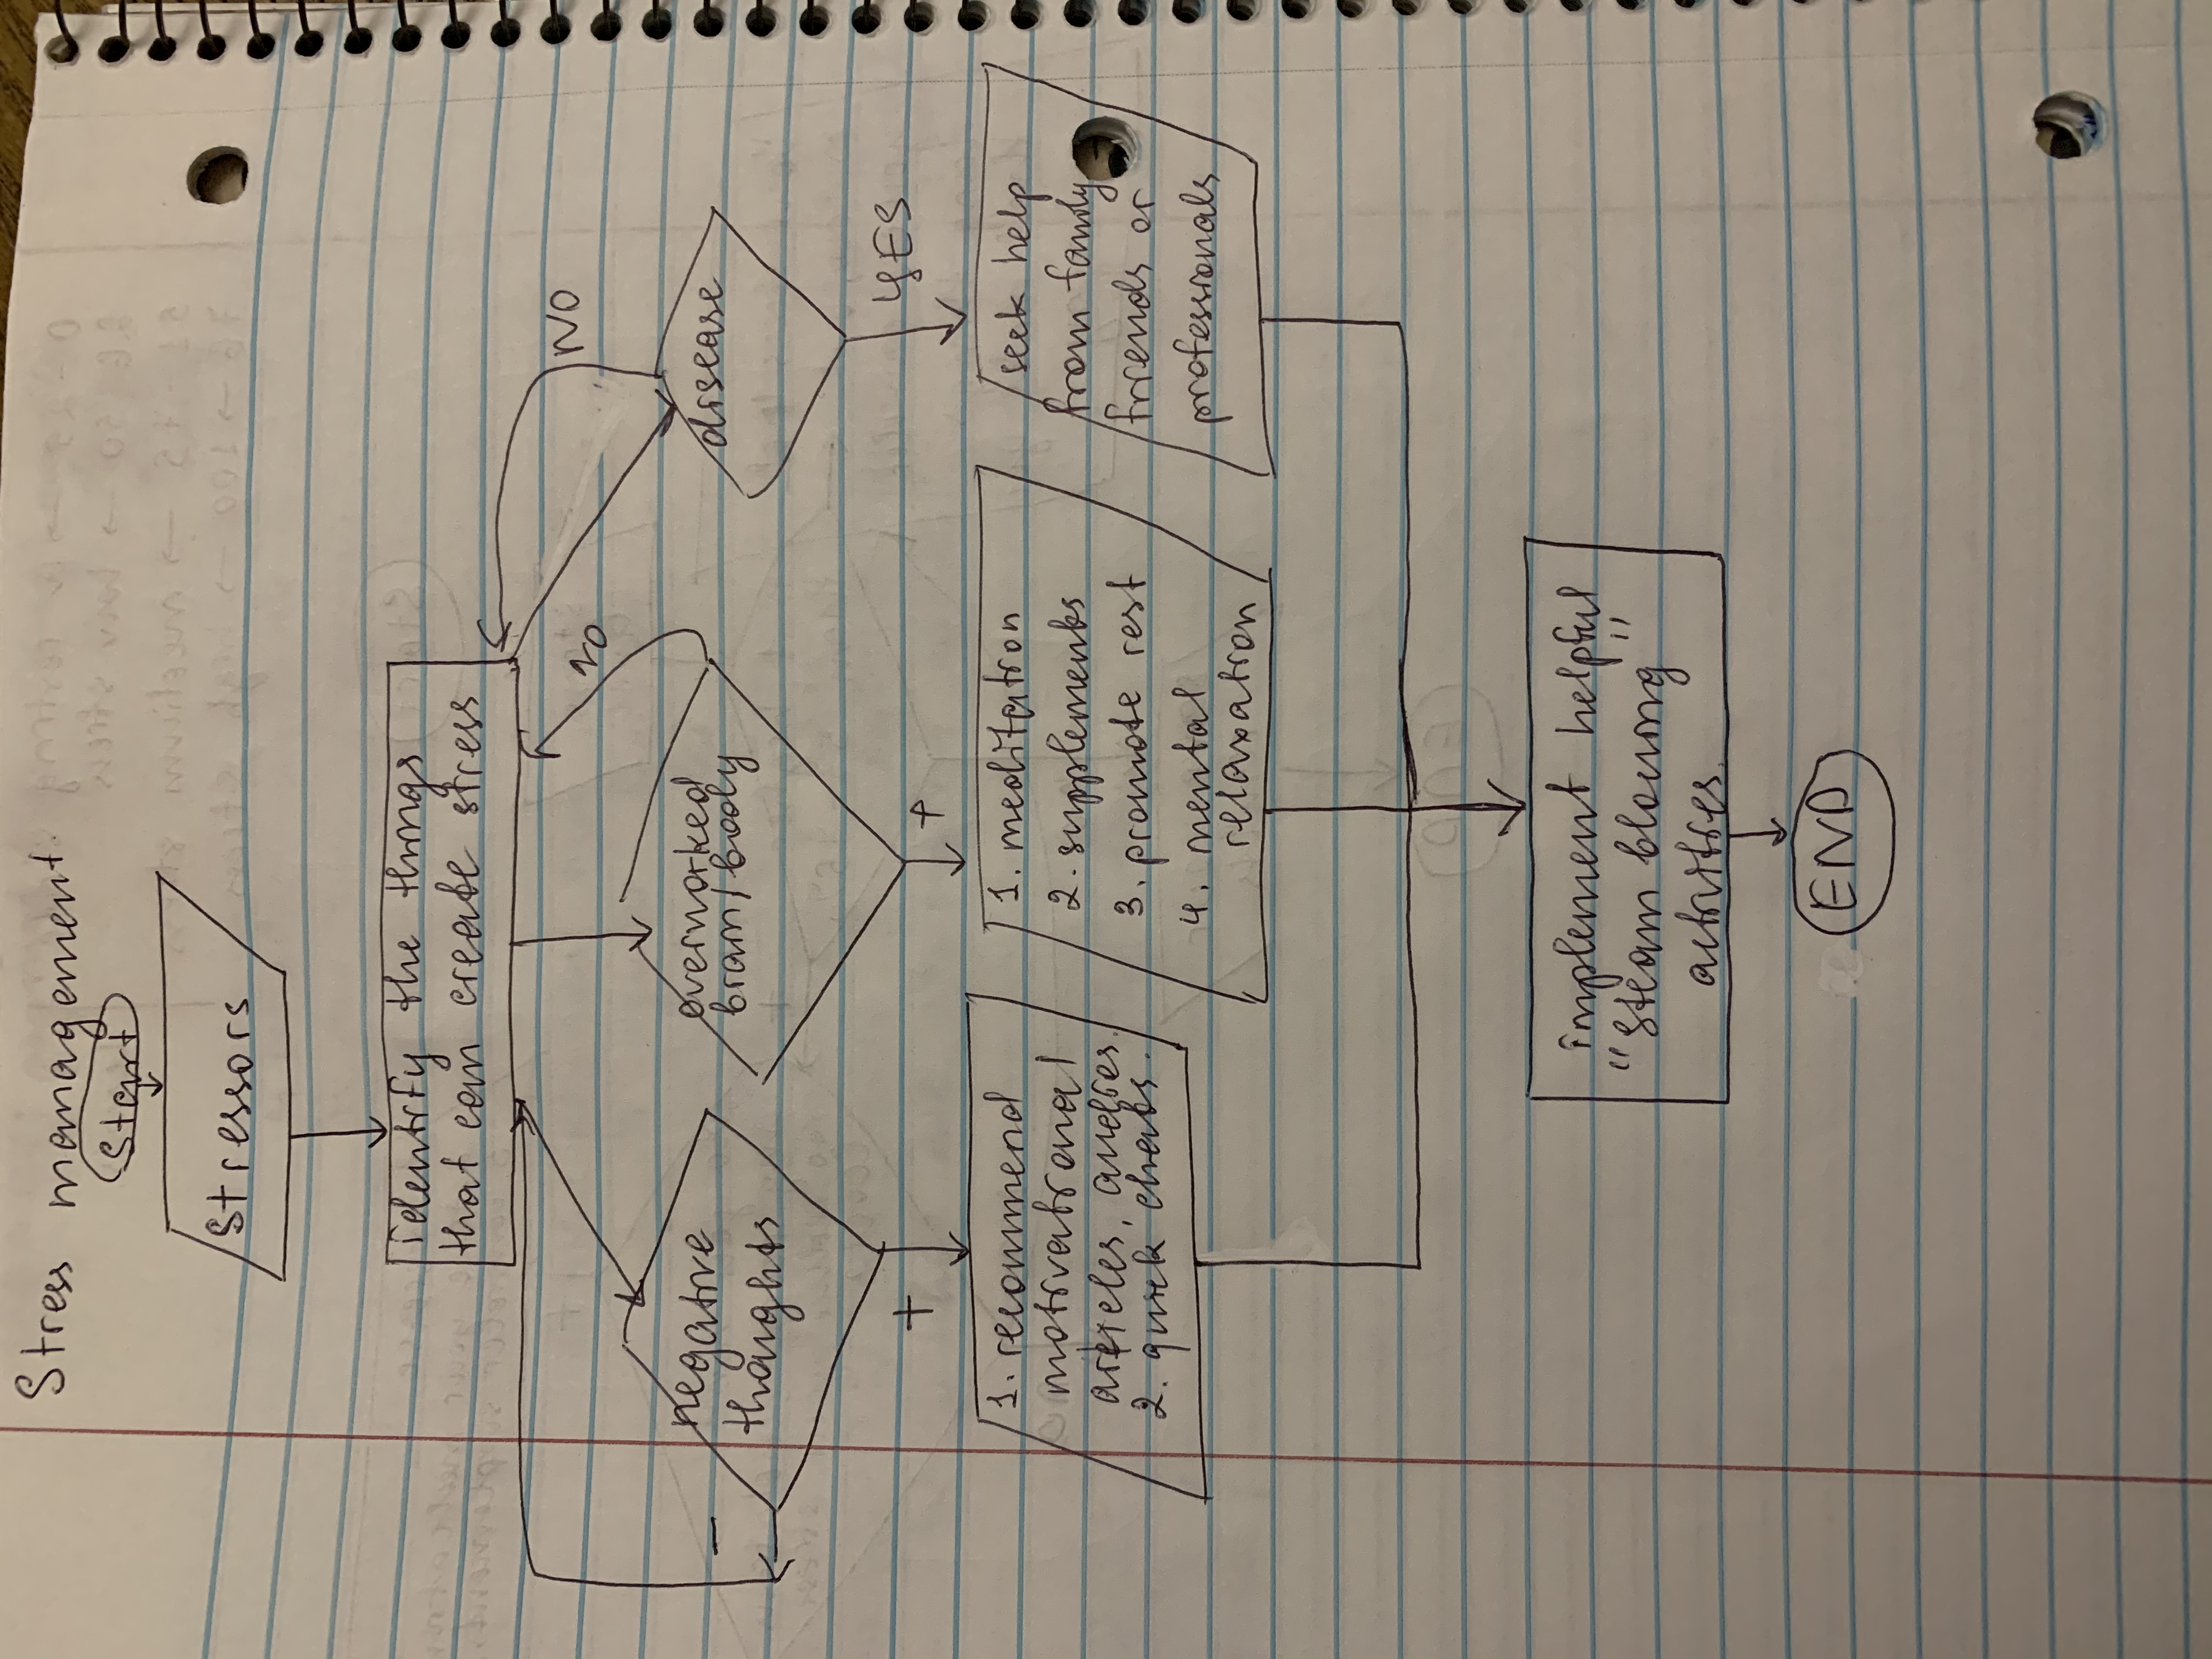 Stress management.
Start
Stressors
identify the things
that can create stress
NO
NO
negative
thoughts
-
overworked
brain/body
disease
+
+
YES
1. recommend
motivational
articles, audios.
2. quick chats.
1. meditation
2. supplements
3. promote rest
4. mental
relaxation
seek help
from family
friends or
professionals
implement helpful
"Steam blowing"
activities.
END